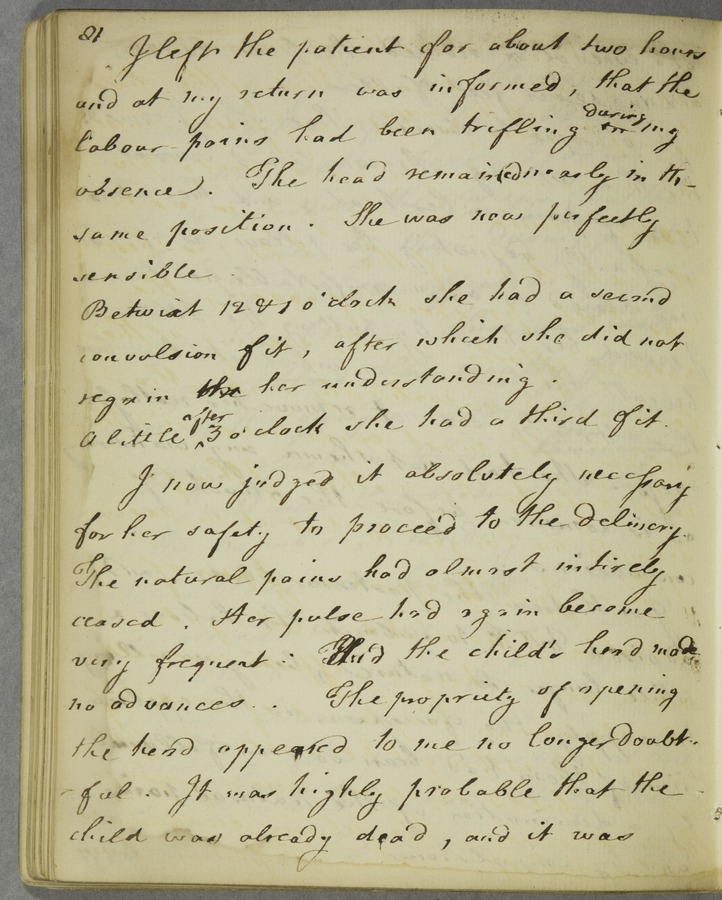 81
I left the patient for about two hours
and at my return was informed, that the
labour-pains had been trifling during my
absence. The head remained nearly in th-
same position. She was now perfectly
sensible.
Betwixt 12 & 1 o'clock she had a second
convulsion fit, after which she did not
regain the her understanding.
A little after 3 o'clock she had a third fit.
I now judged it absolutely necessary
for her safety to proceed to the delivery.
The natural pains had almost intirely
ceased. Her pulse had again become
very frequent: And the child's head made
no advances. The propriety of opening
the head appeared to me no longer doubt-
-ful. It was highly probable that the
child was already dead, and it was